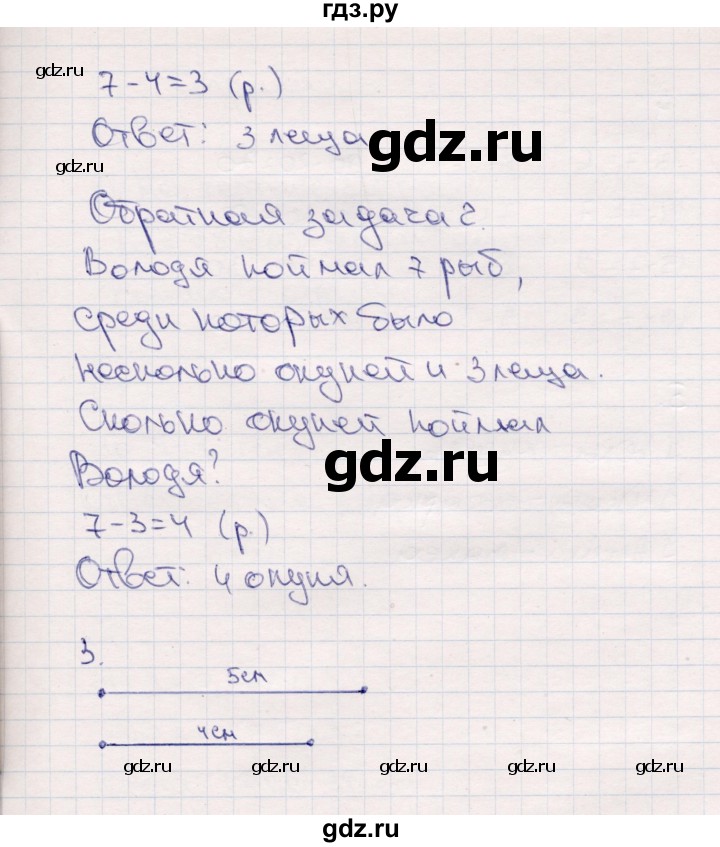 гдз.ру
gdz.ru
7-4=3 (р.)
Ответ: 3 леща
gdz.ru
gdz.ru
Обратная задача 2.
Володя поймал 7 рыб,
среди которых было
несколько окуней и 3 леща.
Сколько окуней поймал
Володя?
gdz.ru
7-3=4 (р.)
Ответ: 4 окуня.
3.
5см
4см
gdz.ru gdz.ru gdz.ru gdz.ru gdz.ru
gdz.ru